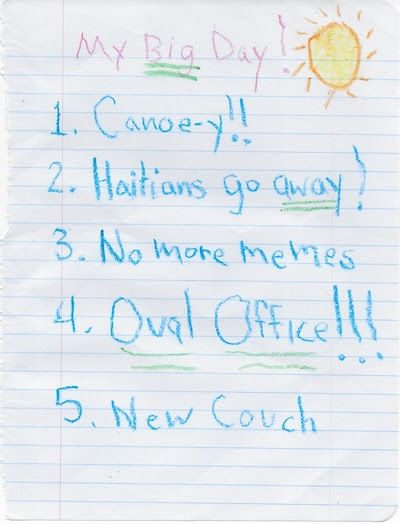 My Big Day!
1. Canoe-y!!
2. Haitians go away!
3. No more memes
4. Oval Office!!!
5. New Couch